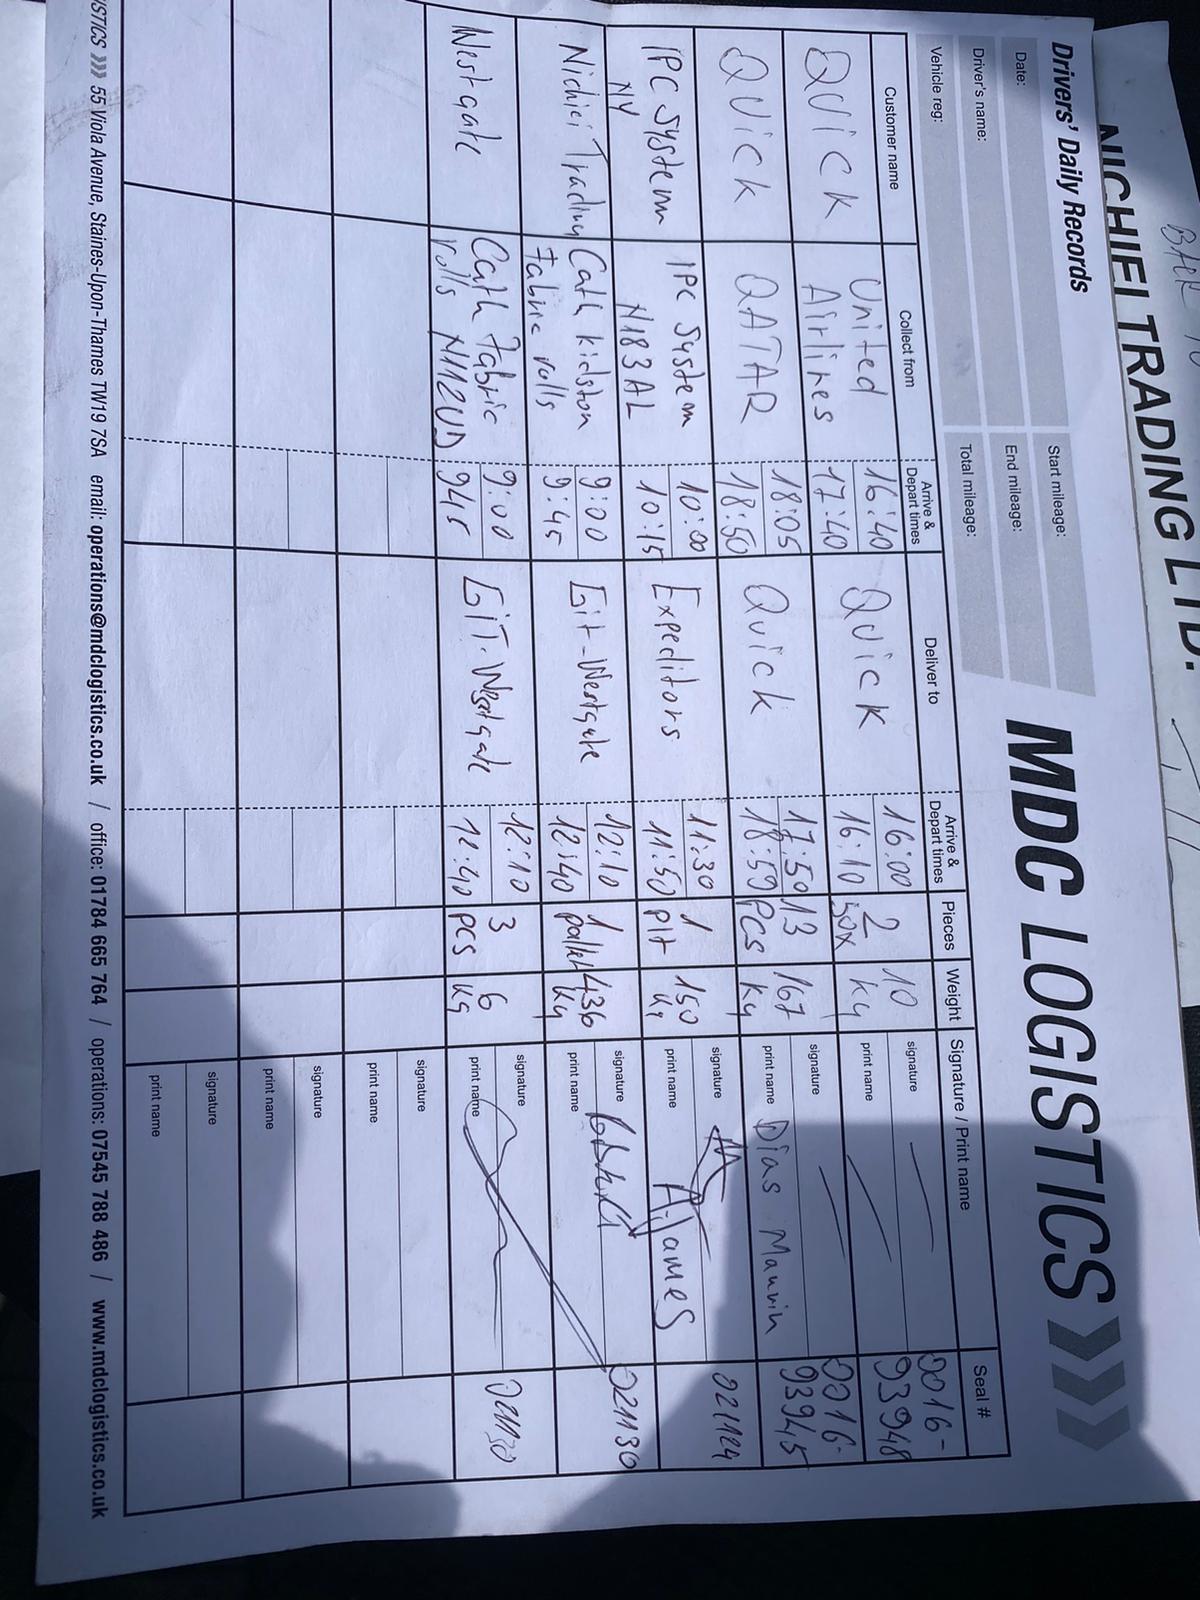 BACK TO
NICHIEI TRADING LTD.
Drivers' Daily Records
MDC LOGISTICS
Date:
Start mileage:
Driver's name:
End mileage:
Vehicle reg:
Total mileage:
Customer name
Collect from
Arrive & Depart times
Deliver to
Arrive & Depart times
Pieces
Weight
Signature / Print name
Seal #
QUICK
United Airlines
16:40
17:40
QUICK
16:00
16:10
2 BOX
10 kg
signature
print name
0016-93948
QUICK
QATAR
18:05
18:50
Quick
17:50
18:50
13 PCS
167 kg
signature
print name Dias Mauvin
0016-93945
IPC System NY
IPC System N183AL
10:00
10:15
Expeditors
11:30
11:50
1 plt
150 kg
signature
print name A.James
021124
Nichiei Trading
Cath kidston Fabric rolls
9:00
9:45
Git-Westgate
12:10
12:40
1 pallet
436 kg
signature
print name
021130
Westgate
Cath Fabric rolls N112UD
9:00
945
GIT-Westgate
12:10
12:40
3 PCS
6 kg
signature
print name
021130
signature
print name
signature
print name
signature
print name
ISTICS 55 Viola Avenue, Staines-Upon-Thames TW19 7SA email: operations@mdclogistics.co.uk / office: 01784 665 764 / operations: 07545 788 486 / www.mdclogistics.co.uk